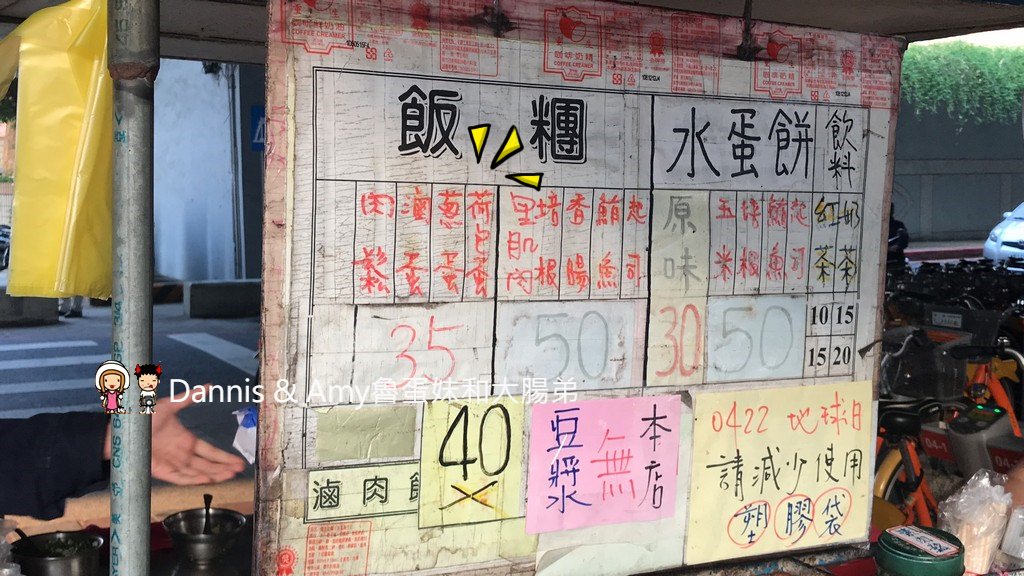 飯糰
水蛋餅
飲料
肉鬆
滷蛋
蔥蛋
荷包蛋
里肌肉
培根
香腸
鮪魚
起司
原味
玉米
培根
鮪魚
起司
紅茶
奶茶
35
50
30
50
10 15
15 20
Dannis & Amy魯蛋妹和大腸弟
滷肉飯
40
本店
無
豆漿
0422 地球日
請減少使用
塑膠袋
咖啡奶精
COFFEE CREAMER